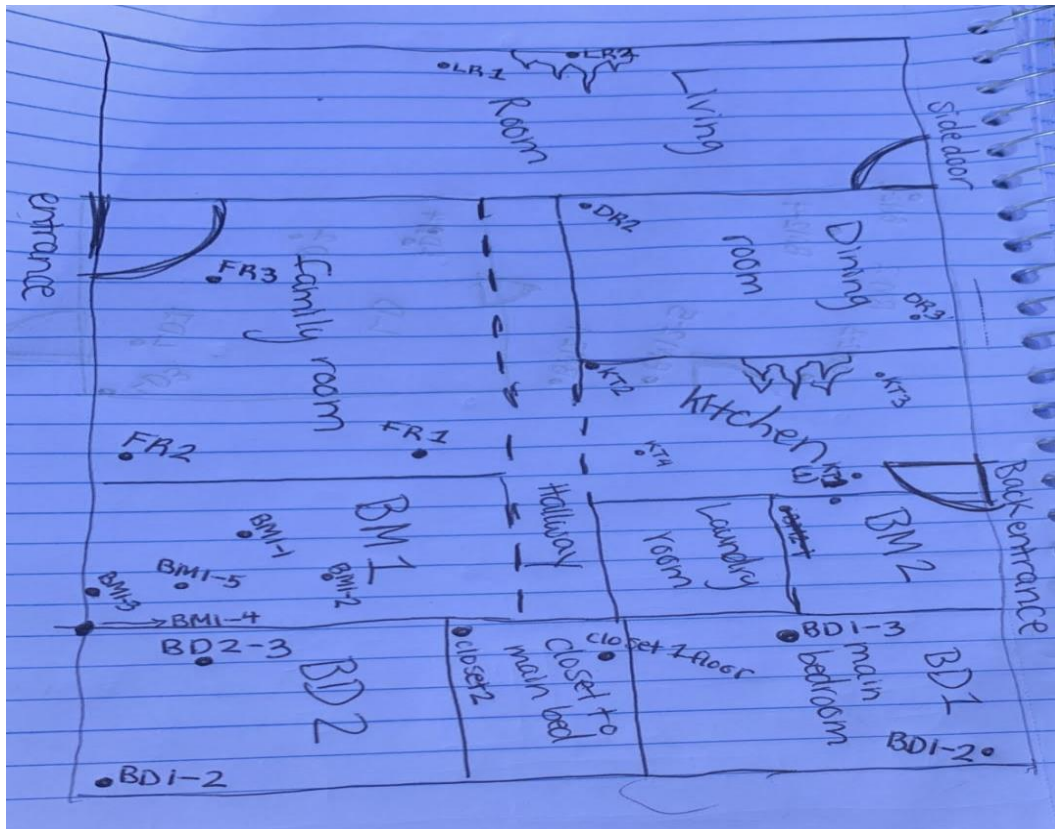 LR1
LR2
Living
Room
side door
entrance
DR2
Dining
room
DR3
FR3
family room
FR2
FR1
KT2
KT3
Kitchen
KT4
Back entrance
Hallway
Laundry
room
BM2
BM1
BM1-1
BM1-5
BM1-2
BM1-3
BM1-4
BD2-3
BD2
BD1-2
closet2
closet to
main bed
closet 1 floor
BD1-3
BD1
main
bedroom
BD1-2